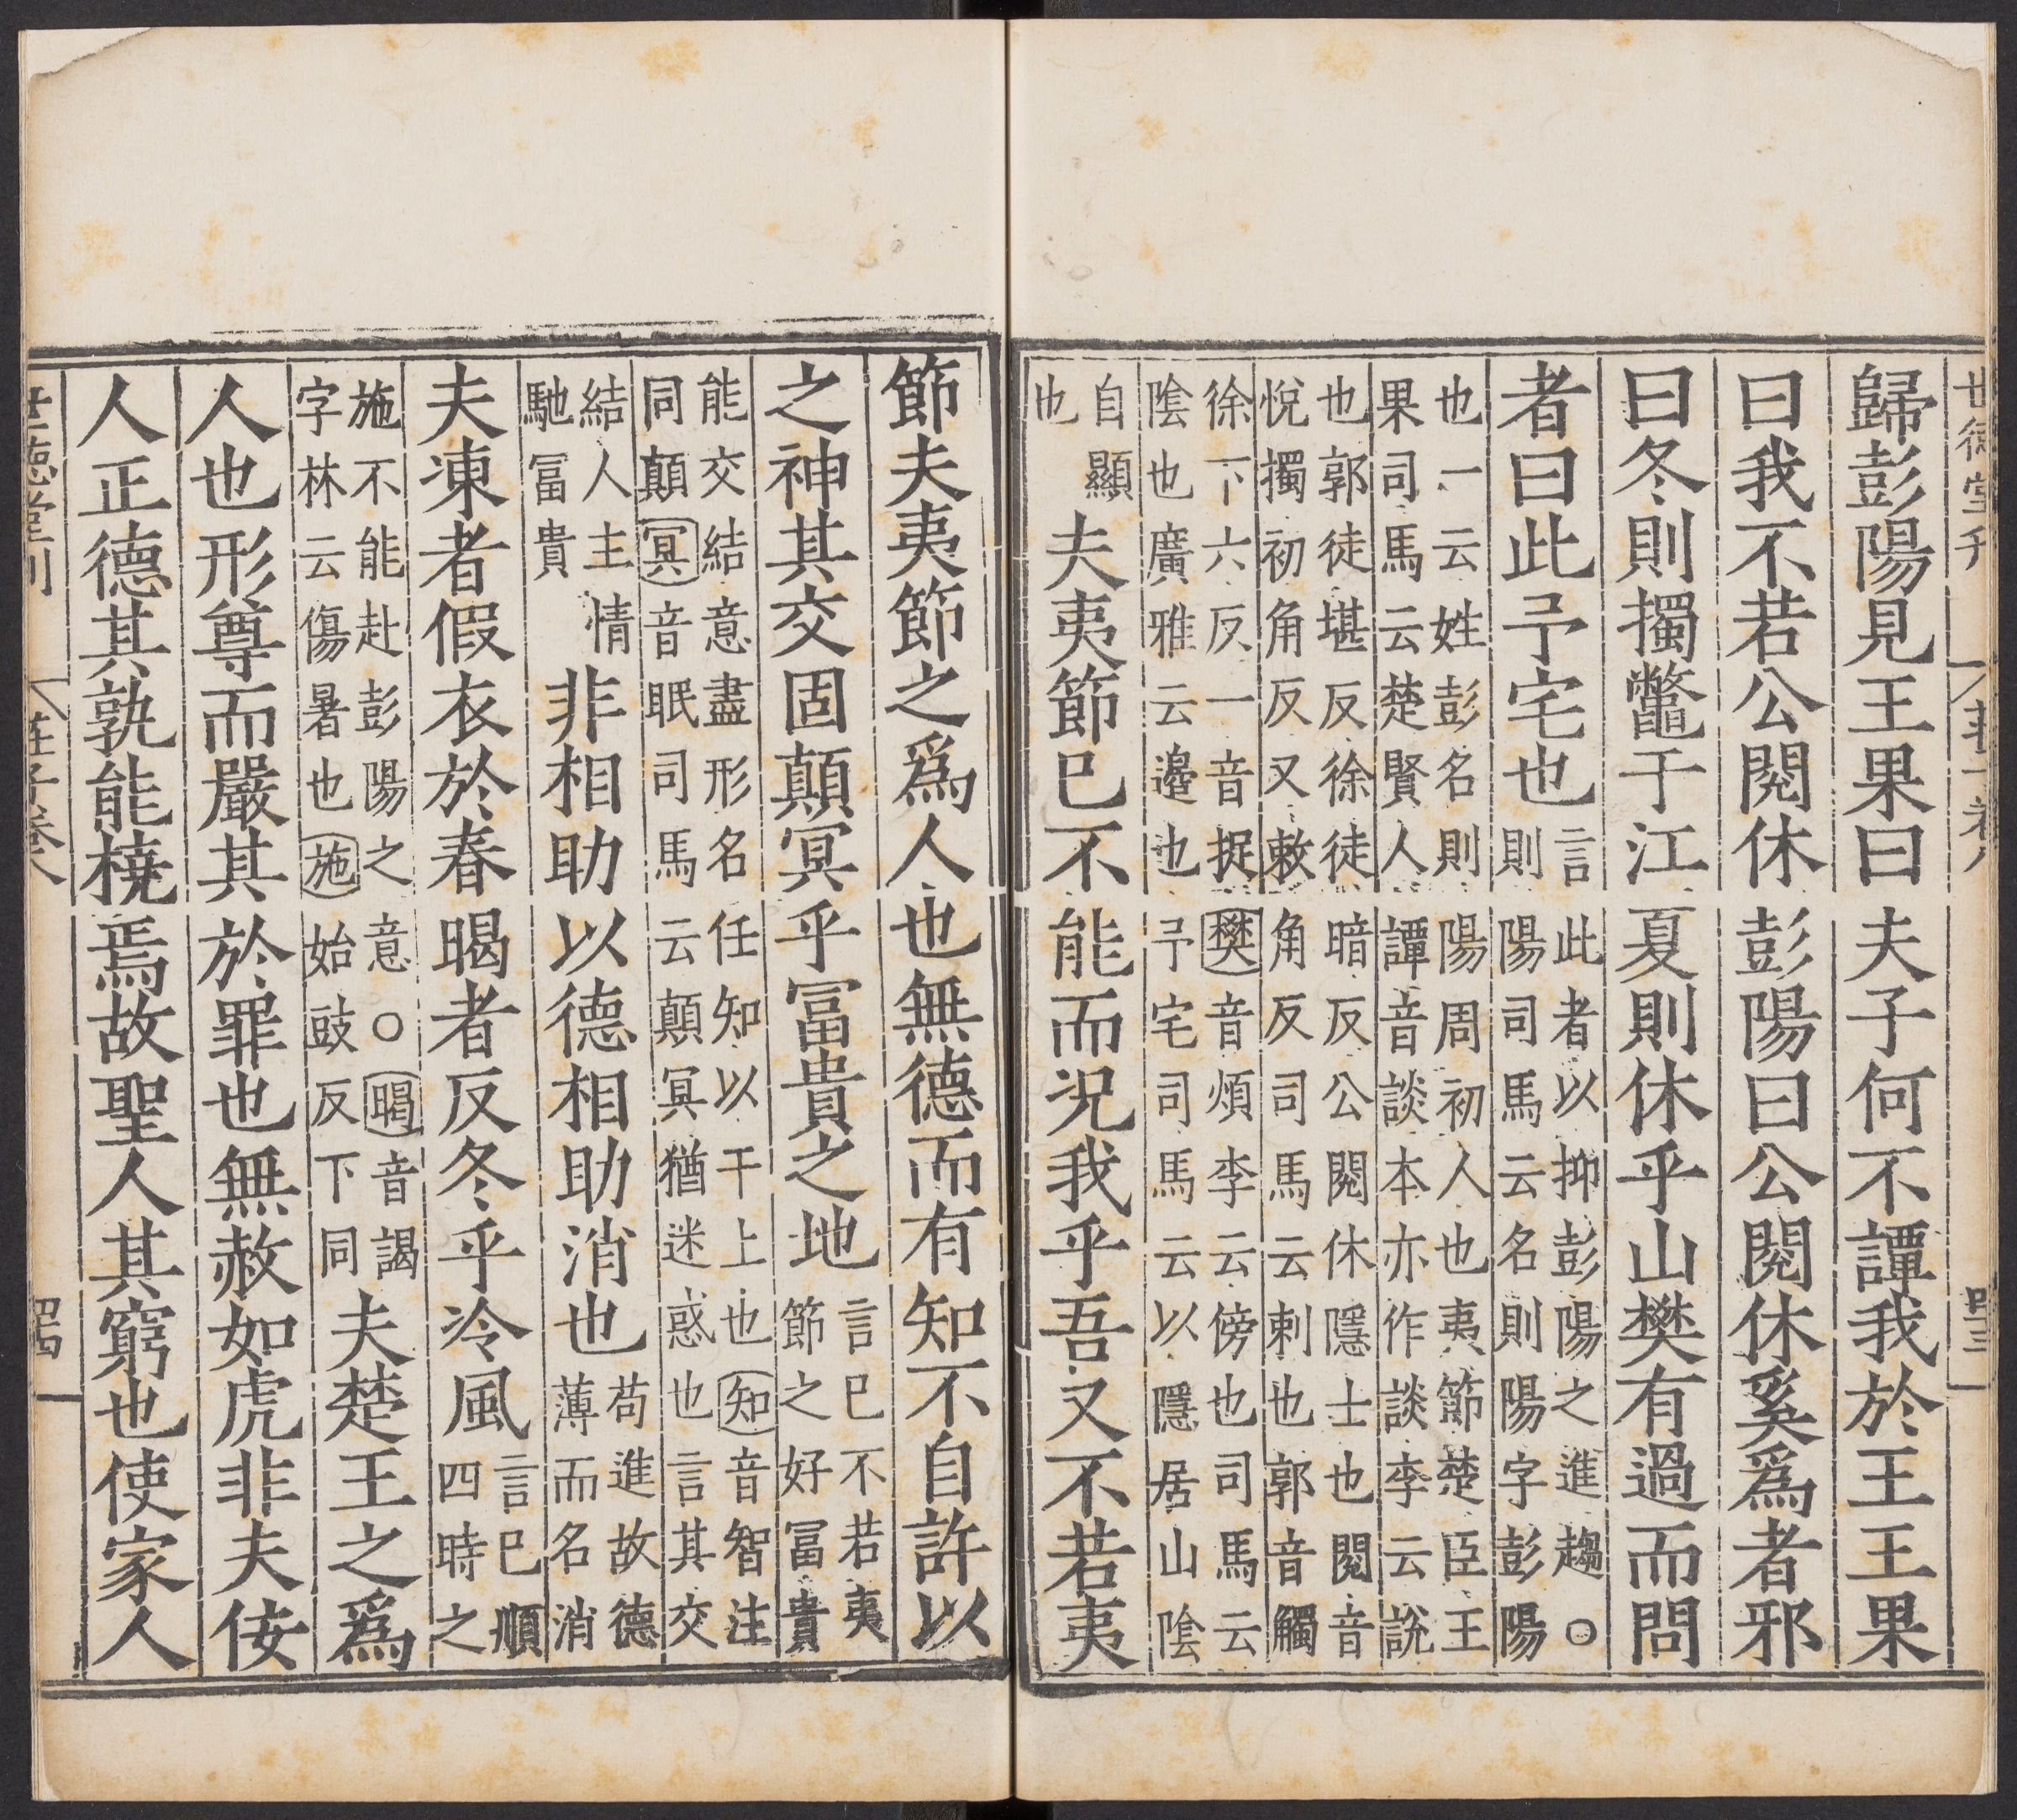 世德堂刊 莊子卷八 四三
歸彭陽見王果曰夫子何不譚我於王王果
曰我不若公閱休彭陽曰公閱休奚爲者邪
曰冬則擉鼈于江夏則休乎山樊有過而問
者曰此予宅也言此者以抑彭陽之進趨〇則陽司馬云名則陽字彭陽
也一云姓彭名則陽周初人也夷節楚臣王果司馬云楚賢人譚音談本亦作談李云說
也郭徒堪反徐徒暗反公閱休隱士也閱音悅擉初角反又敕角反司馬云刺也郭音觸
徐丁六反一音捉樊音煩李云傍也司馬云陰也廣雅云邊也予宅司馬云以隱居山陰
自顯也夫夷節已不能而况我乎吾又不若夷
節夫夷節之爲人也無德而有知不自許以
之神其交固顛冥乎冨貴之地言已不若夷節之好冨貴
能交結意盡形名任知以干上也知音智注同顛冥音眠司馬云顛冥猶迷惑也言其交
結人主情馳冨貴非相助以德相助消也苟進故德薄而名消
夫凍者假衣於春暍者反冬乎冷風言已順四時之
施不能赴彭陽之意〇暍音謁字林云傷暑也施始豉反下同夫楚王之爲
人也形尊而嚴其於罪也無赦如虎非夫佞
人正德其孰能橈焉故聖人其窮也使家人
世德堂刊 莊子卷八 四四